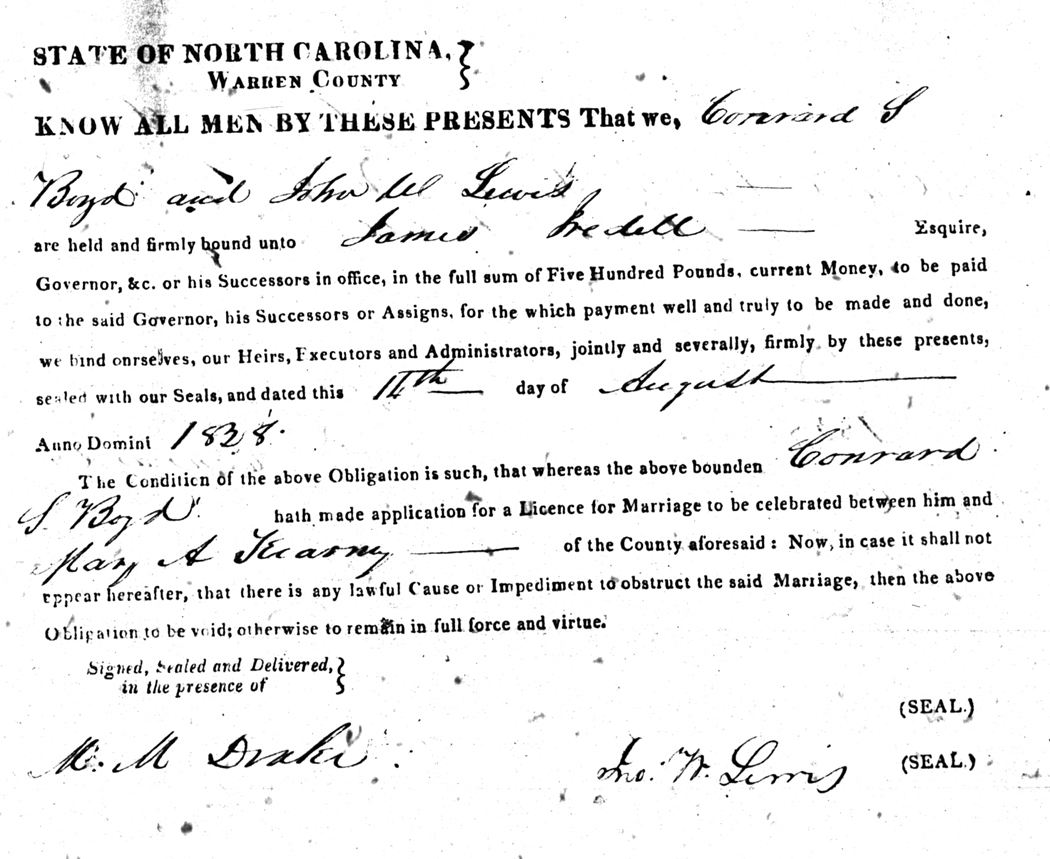 STATE OF NORTH CAROLINA,
WARREN COUNTY
KNOW ALL MEN BY THESE PRESENTS That we, Conrard S
Boyd and John W Lewis
are held and firmly bound unto James Iredell Esquire,
Governor, &c. or his Successors in office, in the full sum of Five Hundred Pounds, current Money, to be paid
to the said Governor, his Successors or Assigns, for the which payment well and truly to be made and done,
we bind onrselves, our Heirs, Executors and Administrators, jointly and severally, firmly by these presents,
sealed with our Seals, and dated this 14th day of August
Anno Domini 1828.
The Condition of the above Obligation is such, that whereas the above bounden Conrard
S. Boyd hath made application for a Licence for Marriage to be celebrated between him and
Mary A Kearny of the County aforesaid: Now, in case it shall not
appear hereafter, that there is any lawful Cause or Impediment to obstruct the said Marriage, then the above
Obligation to be void; otherwise to remain in full force and virtue.
Signed, Sealed and Delivered,
in the presence of
(SEAL.)
M. M Drake Jno. W. Lewis (SEAL.)